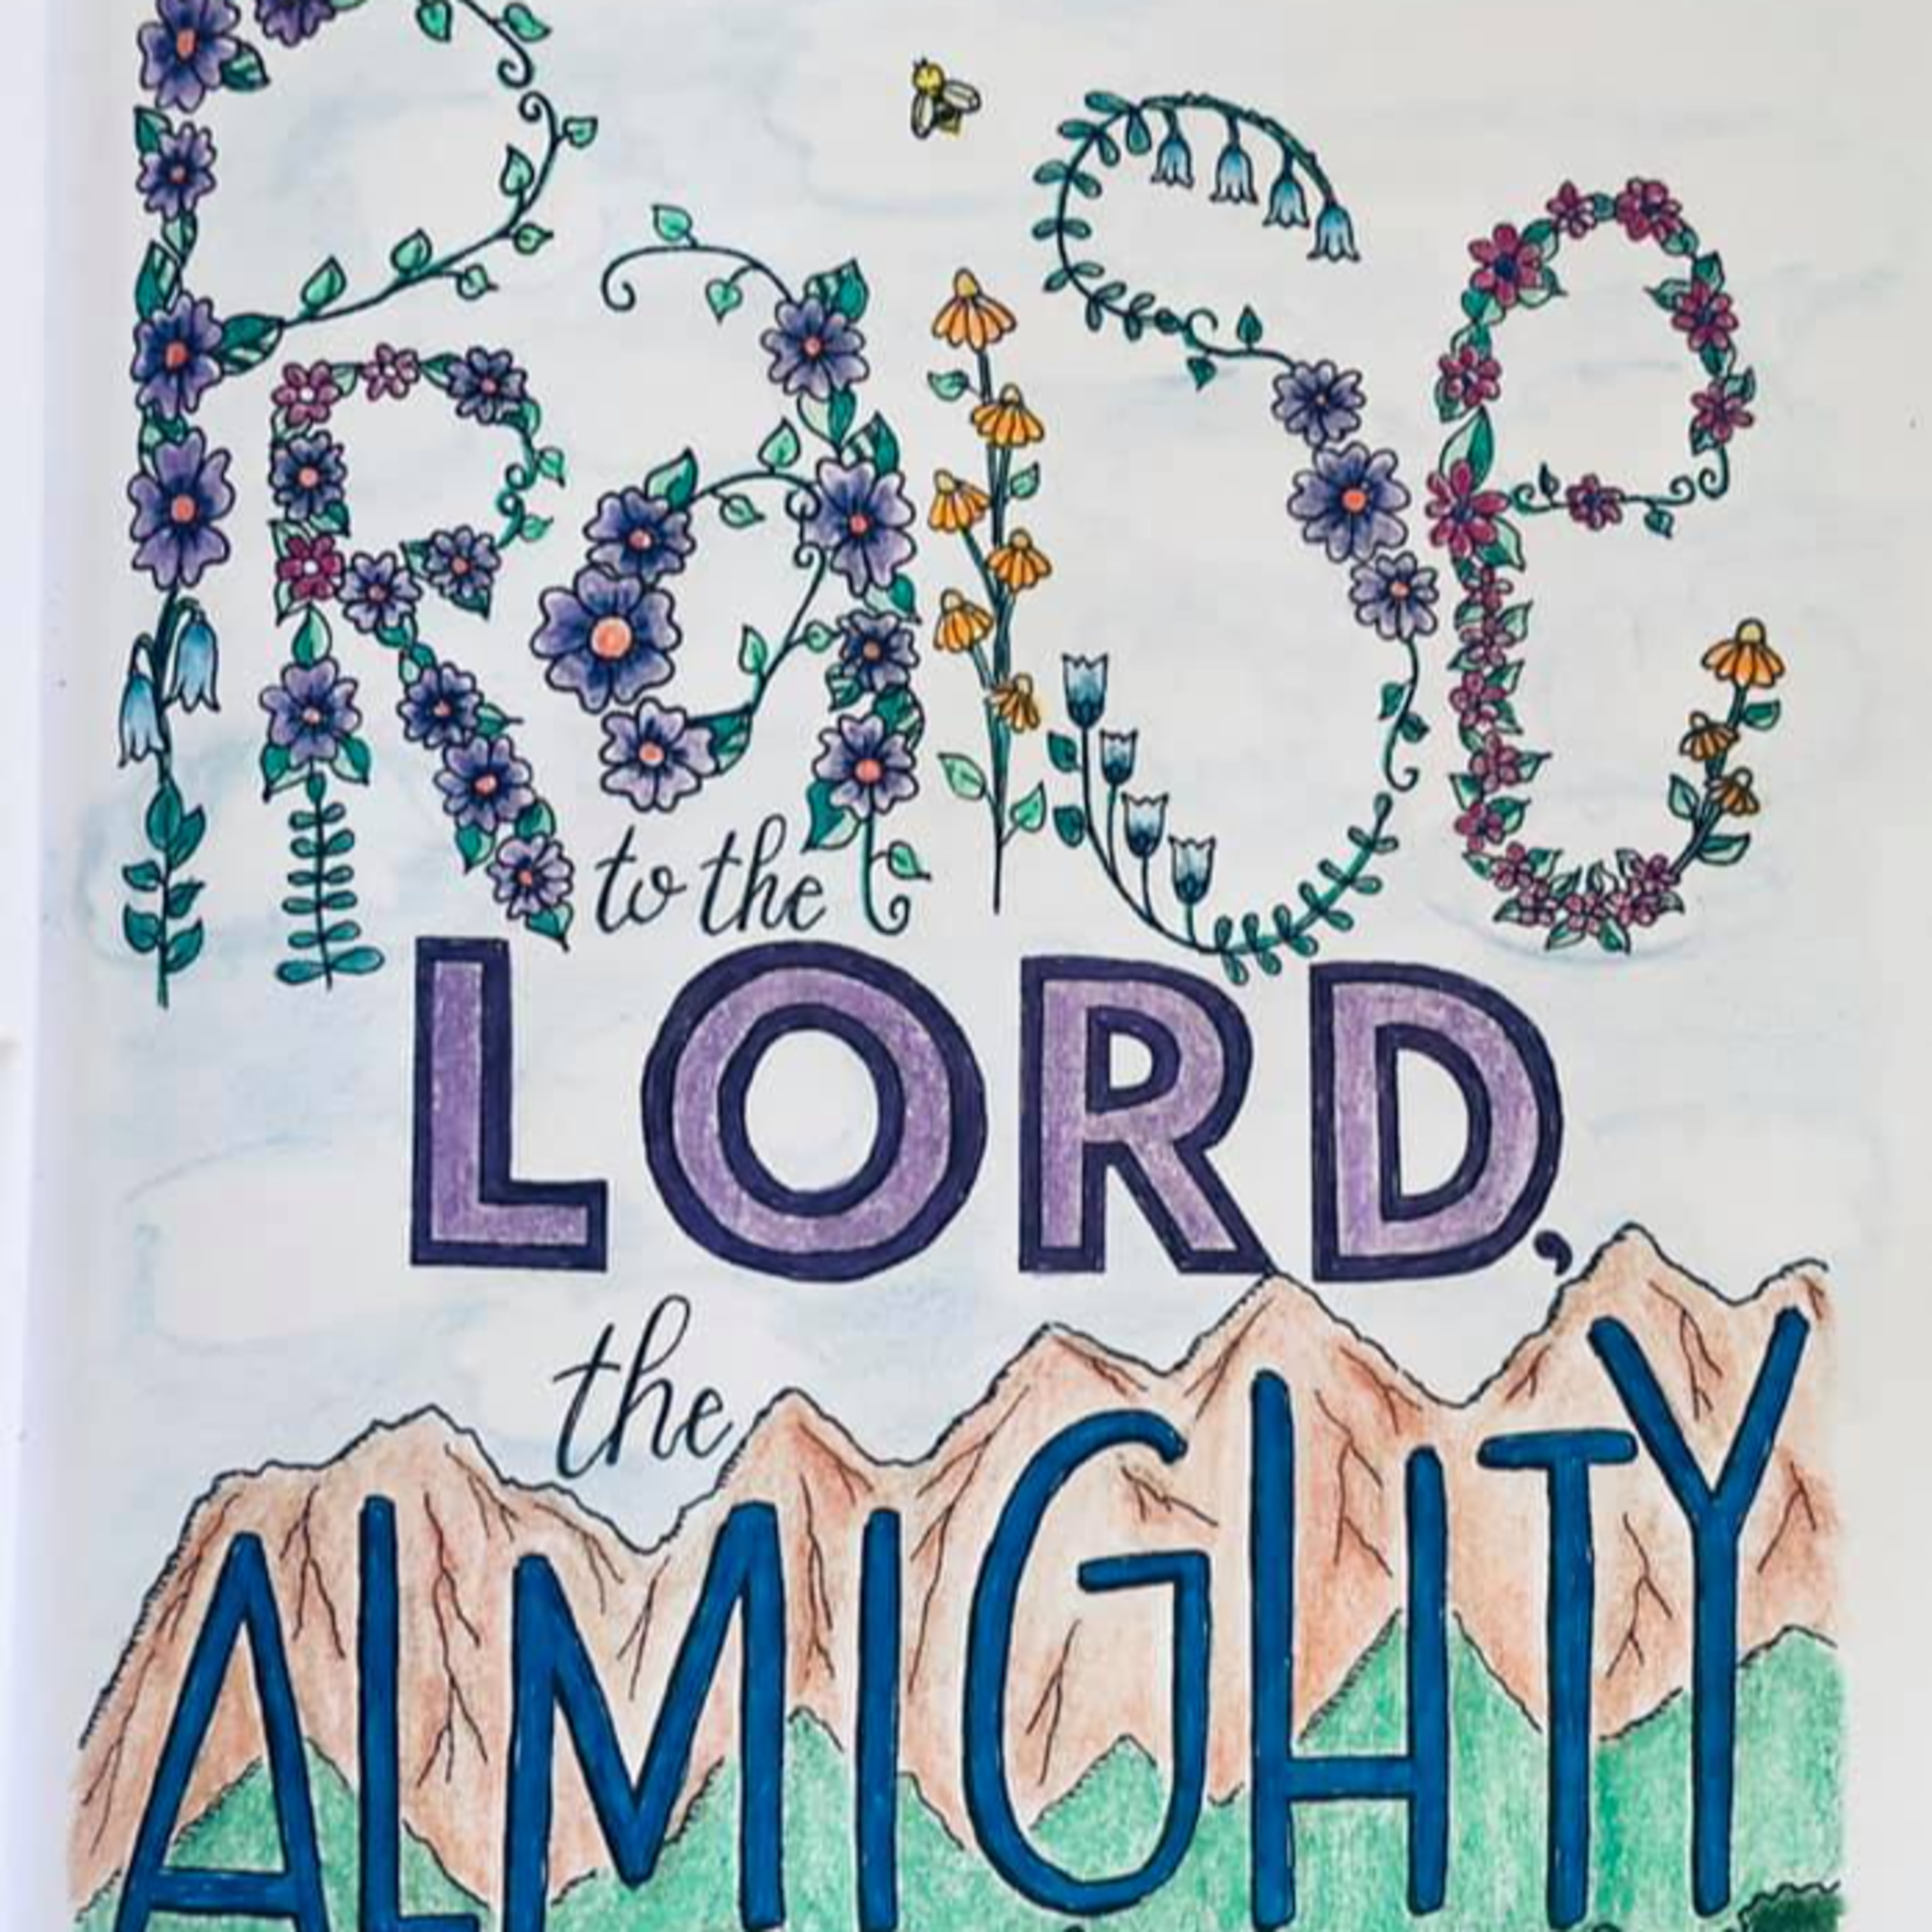 PRaiSe
to the
LORD,
the
ALMIGHTY